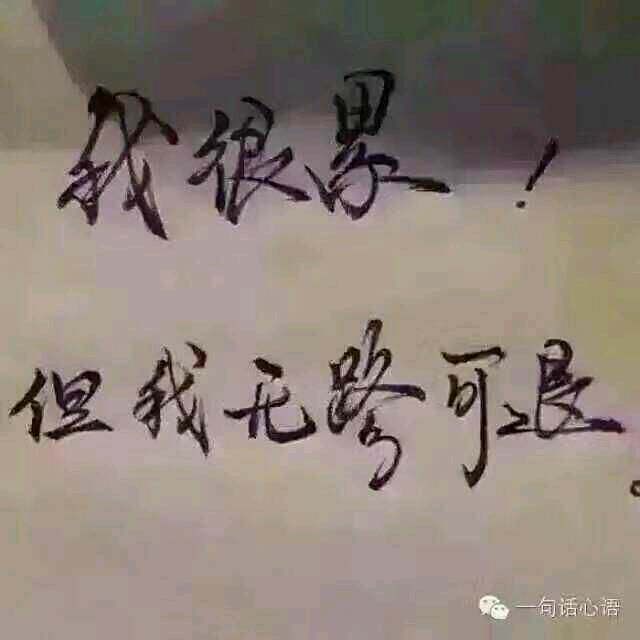 我很累！
但我无路可退。
一句话心语